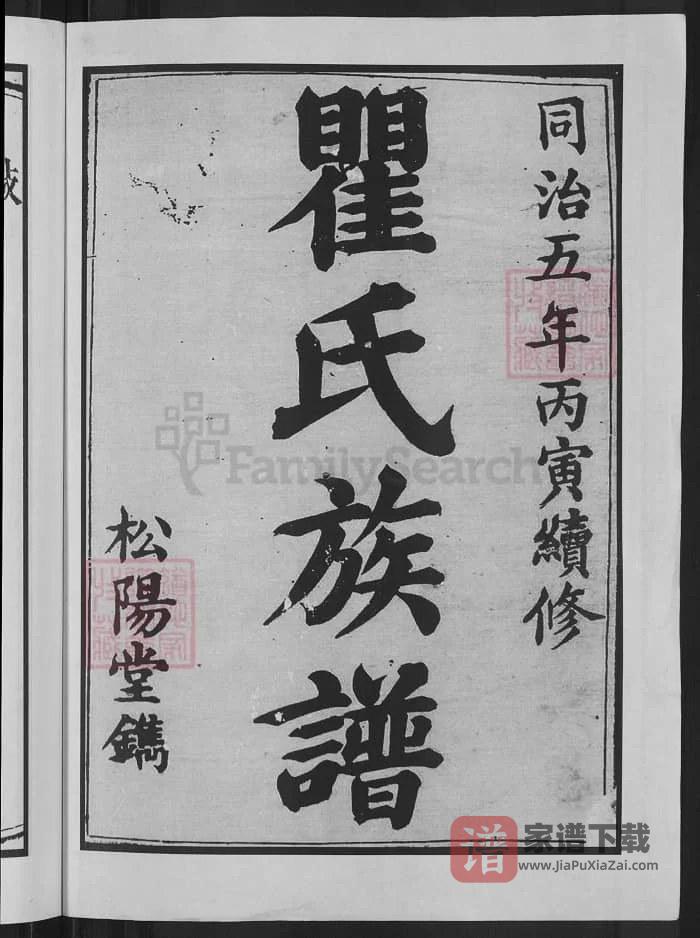 同治五年丙寅續修
瞿氏族譜
松陽堂鐫
FamilySearch
谱
家谱下载
www.JiaPuXiaZai.com